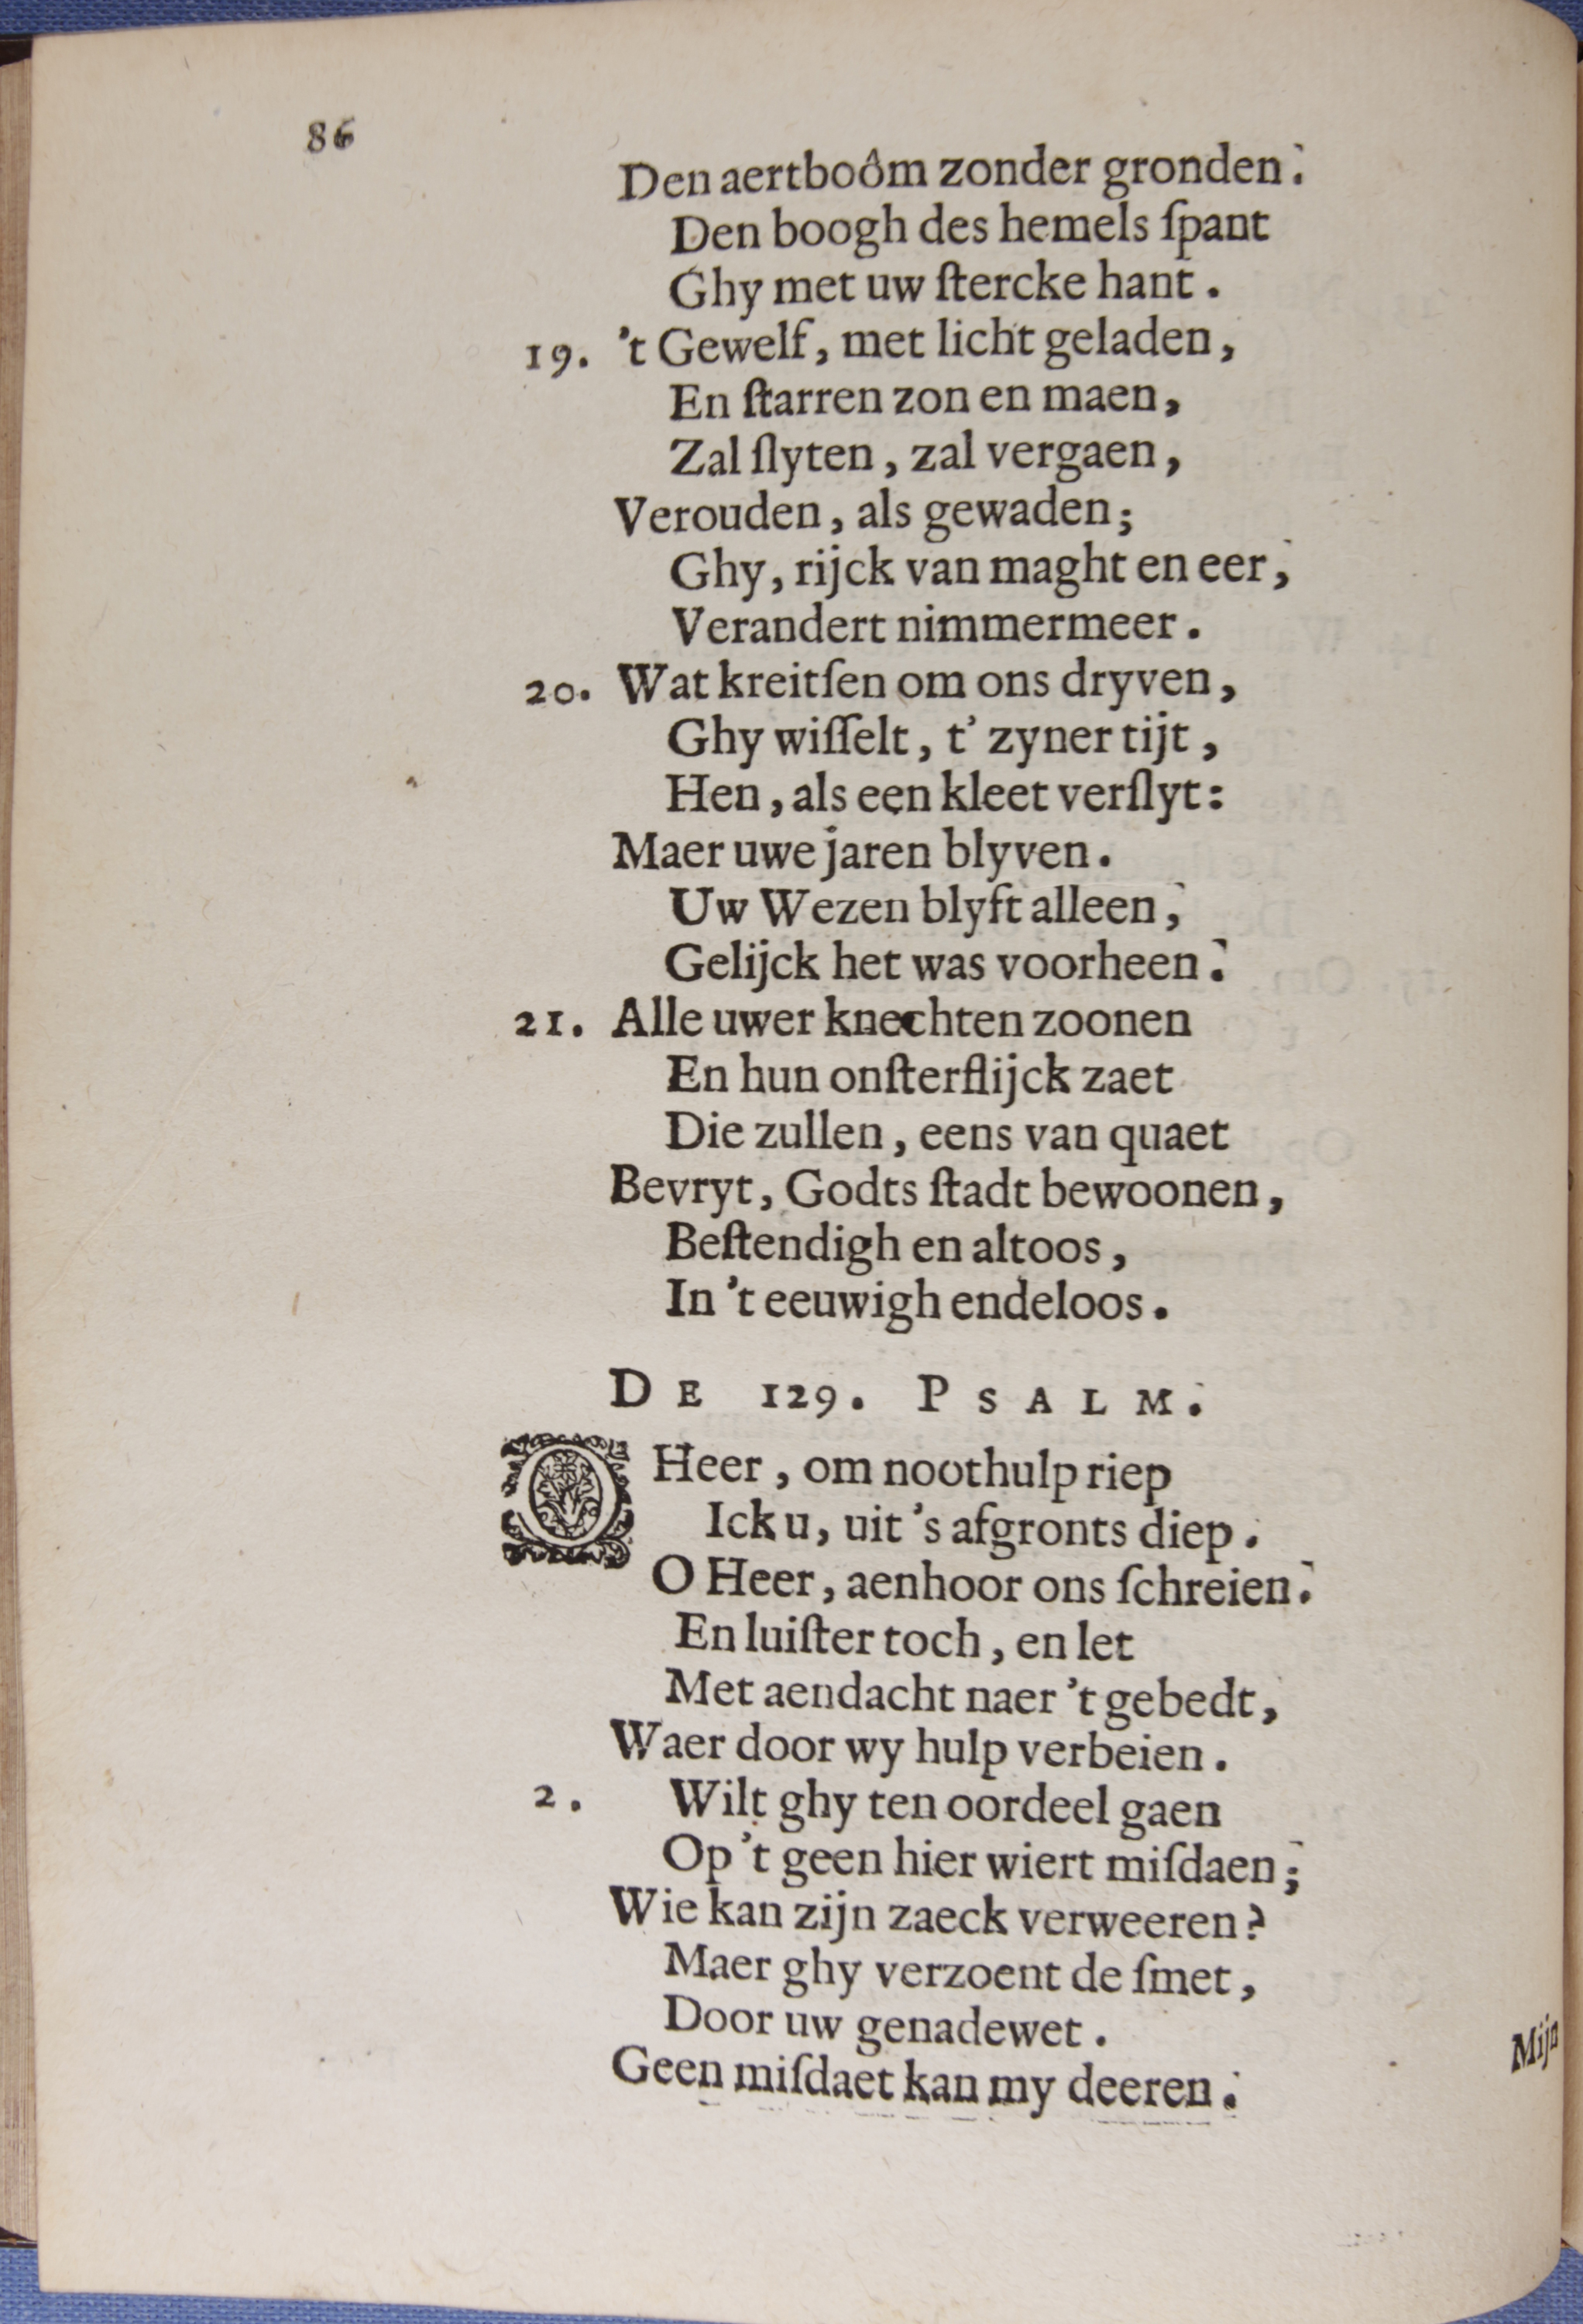 86
Den aertboôm zonder gronden.
Den boogh des hemels ſpant
Ghy met uw ſtercke hant.
19. 't Gewelf, met licht geladen,
En ſtarren zon en maen,
Zal ſlyten, zal vergaen,
Verouden, als gewaden;
Ghy, rijck van maght en eer,
Verandert nimmermeer.
20. Wat kreitſen om ons dryven,
Ghy wiſſelt, t' zyner tijt,
Hen, als een kleet verſlyt:
Maer uwe jaren blyven.
Uw Wezen blyft alleen,
Gelijck het was voorheen.
21. Alle uwer knechten zoonen
En hun onſterflijck zaet
Die zullen, eens van quaet
Bevryt, Godts ſtadt bewoonen,
Beſtendigh en altoos,
In 't eeuwigh endeloos.
DE 129. PSALM.
O Heer, om noothulp riep
Ick u, uit 's afgronts diep.
O Heer, aenhoor ons ſchreien.
En luiſter toch, en let
Met aendacht naer 't gebedt,
Waer door wy hulp verbeien.
2. Wilt ghy ten oordeel gaen
Op 't geen hier wiert miſdaen;
Wie kan zijn zaeck verweeren?
Maer ghy verzoent de ſmet,
Door uw genadewet.
Geen miſdaet kan my deeren.
Mijn